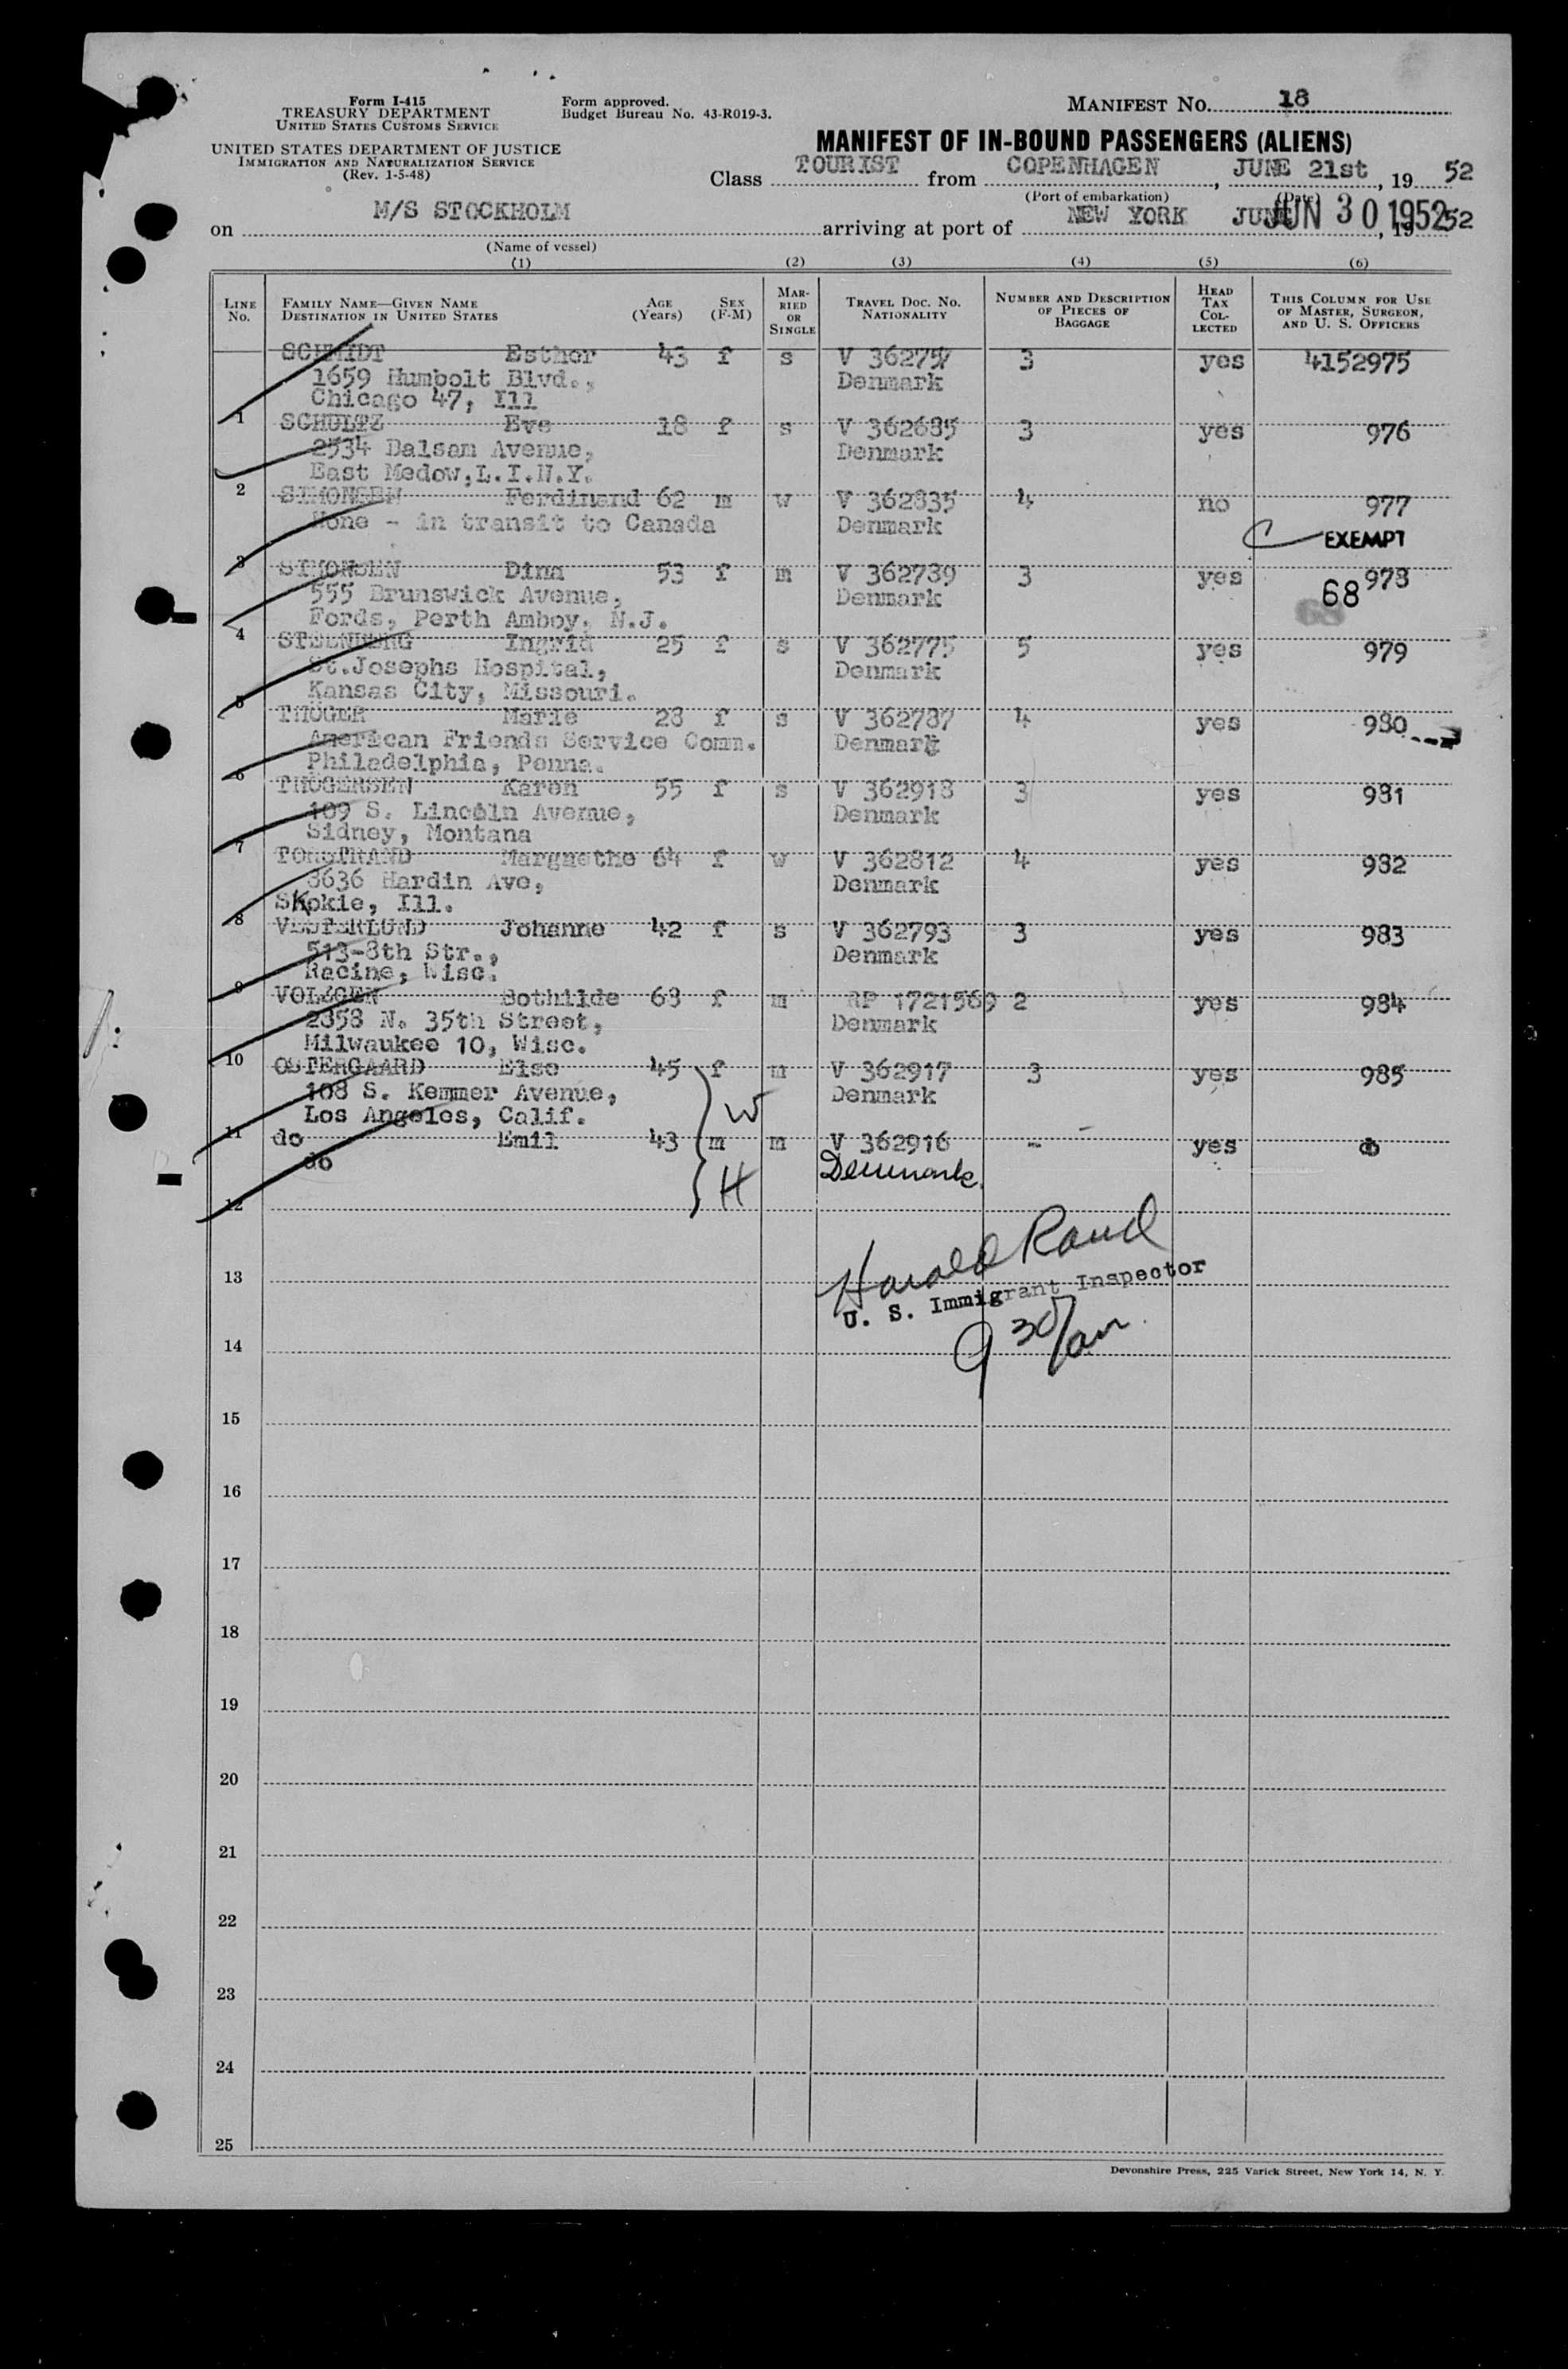 Form I-415
TREASURY DEPARTMENT
UNITED STATES CUSTOMS SERVICE
UNITED STATES DEPARTMENT OF JUSTICE
IMMIGRATION AND NATURALIZATION SERVICE
(Rev. 1-5-48)
Form approved.
Budget Bureau No. 43-R019-3.
MANIFEST NO. 18
MANIFEST OF IN-BOUND PASSENGERS (ALIENS)
Class TOURIST from COPENHAGEN, JUNE 21st, 19 52
(Port of embarkation) (Date)
on M/S STOCKHOLM arriving at port of NEW YORK JUNE JUN 30 1952, 19 52
(Name of vessel)
(1) (2) (3) (4) (5) (6)
LINE NO. FAMILY NAME—GIVEN NAME DESTINATION IN UNITED STATES AGE (Years) SEX (F-M) MARRIED OR SINGLE TRAVEL DOC. NO. NATIONALITY NUMBER AND DESCRIPTION OF PIECES OF BAGGAGE HEAD TAX COLLECTED THIS COLUMN FOR USE OF MASTER, SURGEON, AND U. S. OFFICERS
SCHMIDT Esther 43 f s V 362757 3 yes 4152975
1659 Humbolt Blvd., Denmark
Chicago 47, Ill
1 SCHULTZ Eve 18 f s V 362685 3 yes 976
2534 Balsam Avenue, Denmark
East Medow, L.I.N.Y.
2 SIMONSEN Ferdinand 62 m w V 362835 4 no 977
None - in transit to Canada Denmark
EXEMPT
3 SIMONSEN Dina 53 f m V 362789 3 yes 978
555 Brunswick Avenue, Denmark 68
Fords, Perth Amboy. N.J.
4 STEENBERG Ingrid 25 f s V 362775 5 yes 979
St.Josephs Hospital, Denmark
Kansas City, Missouri.
5 THÖGER Marie 28 f s V 362787 4 yes 980
American Friends Service Comm. Denmark
Philadelphia, Penna.
6 THÖGERSEN Karen 55 f s V 362918 3 yes 981
109 S. Lincoln Avenue, Denmark
Sidney, Montana
7 TORSTRAND Margrethe 64 f w V 362812 4 yes 982
8636 Hardin Ave, Denmark
Skokie, Ill.
8 VESTERLUND Johanne 42 f s V 362793 3 yes 983
513-8th Str., Denmark
Racine, Wisc.
9 VOLZGEN Bothilde 68 f m RP 1721569 2 yes 984
2358 N. 35th Street, Denmark
Milwaukee 10, Wisc.
10 OSTERGAARD Else 45 f m V 362917 3 yes 985
108 S. Kemmer Avenue, W Denmark
Los Angeles, Calif.
11 do Emil 43 m m V 362916 - yes
do H Denmark
12
Harald Raud
13
U. S. Immigrant Inspector
14 9 30/am
15
16
17
18
19
20
21
22
23
24
25
Devonshire Press, 225 Varick Street, New York 14, N. Y.